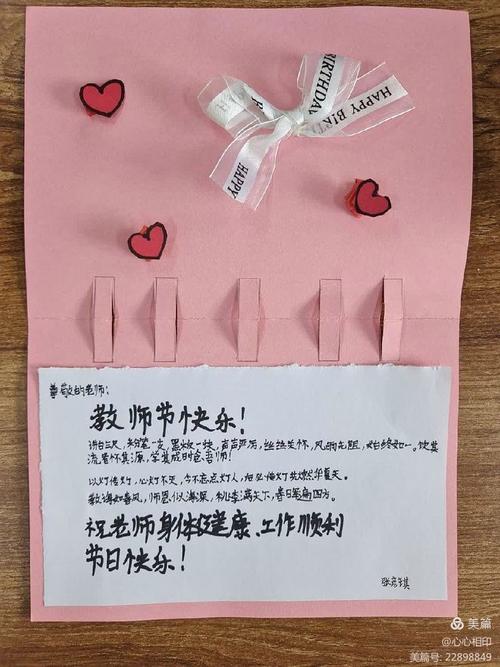 BIRTHDAY
HAPPY BIRT
HAPPY
尊敬的老师：
教师节快乐！
讲台三尺，粉笔一支，黑板一块，声声严厉，丝丝关怀，风雨无阻，始终如一。饮其
流者怀其源，学其成时念吾师！
以灯传灯，心灯不灭，今不忘点灯人，相
教诲如春风，师恩似海深，桃李满天下，春晖遍四方。
祝老师身体健康、工作顺利
节日快乐！
美篇
@心心相印
美篇号: 22898849